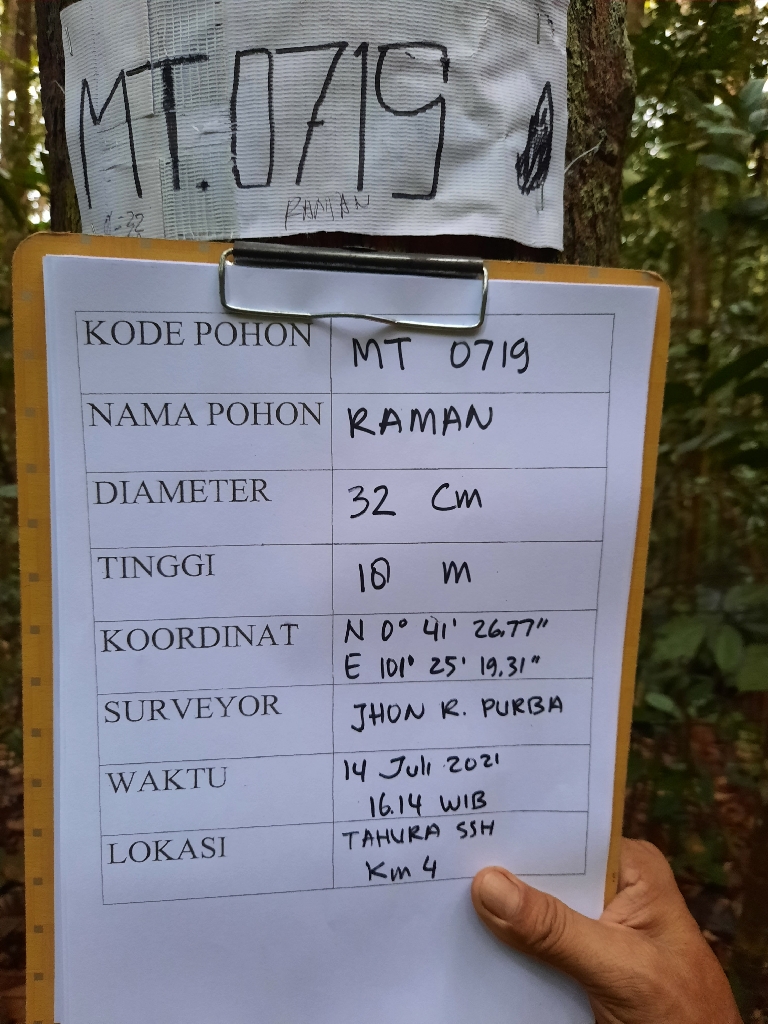 MT.0719
RAMAN
KODE POHON MT 0719
NAMA POHON RAMAN
DIAMETER 32 Cm
TINGGI 10 m
KOORDINAT N 0° 41' 26.77"
E 101° 25' 19.31"
SURVEYOR JHON R. PURBA
WAKTU 14 Juli 2021
16.14 WIB
LOKASI TAHURA SSH
Km 4